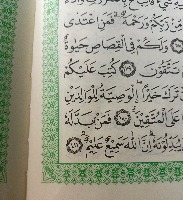 مِّن رَّبِّكُمْ وَرَحْمَةٌ فَمَنِ اعْتَدَىٰ
وَلَكُمْ فِي الْقِصَاصِ حَيَوٰةٌ
تَتَّقُونَ ﴿١٧٩﴾ كُتِبَ عَلَيْكُمْ
تَرَكَ خَيْرًا الْوَصِيَّةُ لِلْوَالِدَيْنِ
عَلَى الْمُتَّقِينَ ﴿١٨٠﴾ فَمَن بَدَّلَهُ
يُبَدِّلُونَهُ إِنَّ اللَّهَ سَمِيعٌ عَلِيمٌ ﴿١٨١﴾